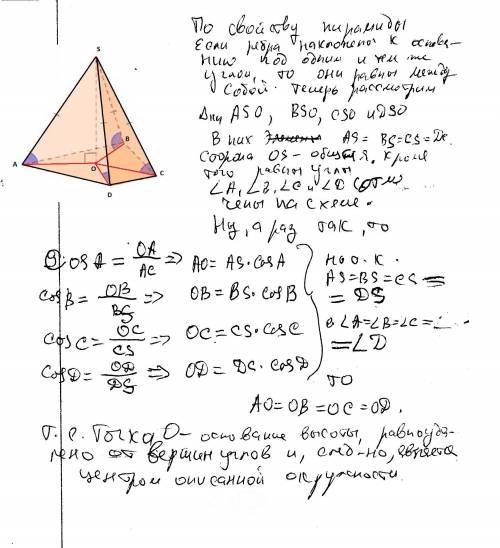 По свойству пирамиды
Если ребра наклонены к основа-
нию под одним и тем же
углом, то они равны между
собой. Теперь рассмотрим
Δки ASO, BSO, CSO и DSO
В них AS = BS = CS = DS.
Сторона OS - общая, кроме
того равны углы
∠A, ∠B, ∠C и ∠D (отме-
чены на схеме.
Ну, а раз так, то
S
A
B
O
D
C
cosA = OA/AC ⇒ AO = AS·cosA
cosB = OB/BS ⇒ OB = BS·cosB
cosC = OC/CS ⇒ OC = CS·cosC
cosD = OD/DS ⇒ OD = DS·cosD
AS = BS = CS =
= DS
∠A = ∠B = ∠C =
= ∠D
то
AO = OB = OC = OD.
Т.е. Точка O - основание высоты, равноуда-
лено от вершин углов и, след-но, является
центром описанной окружности.